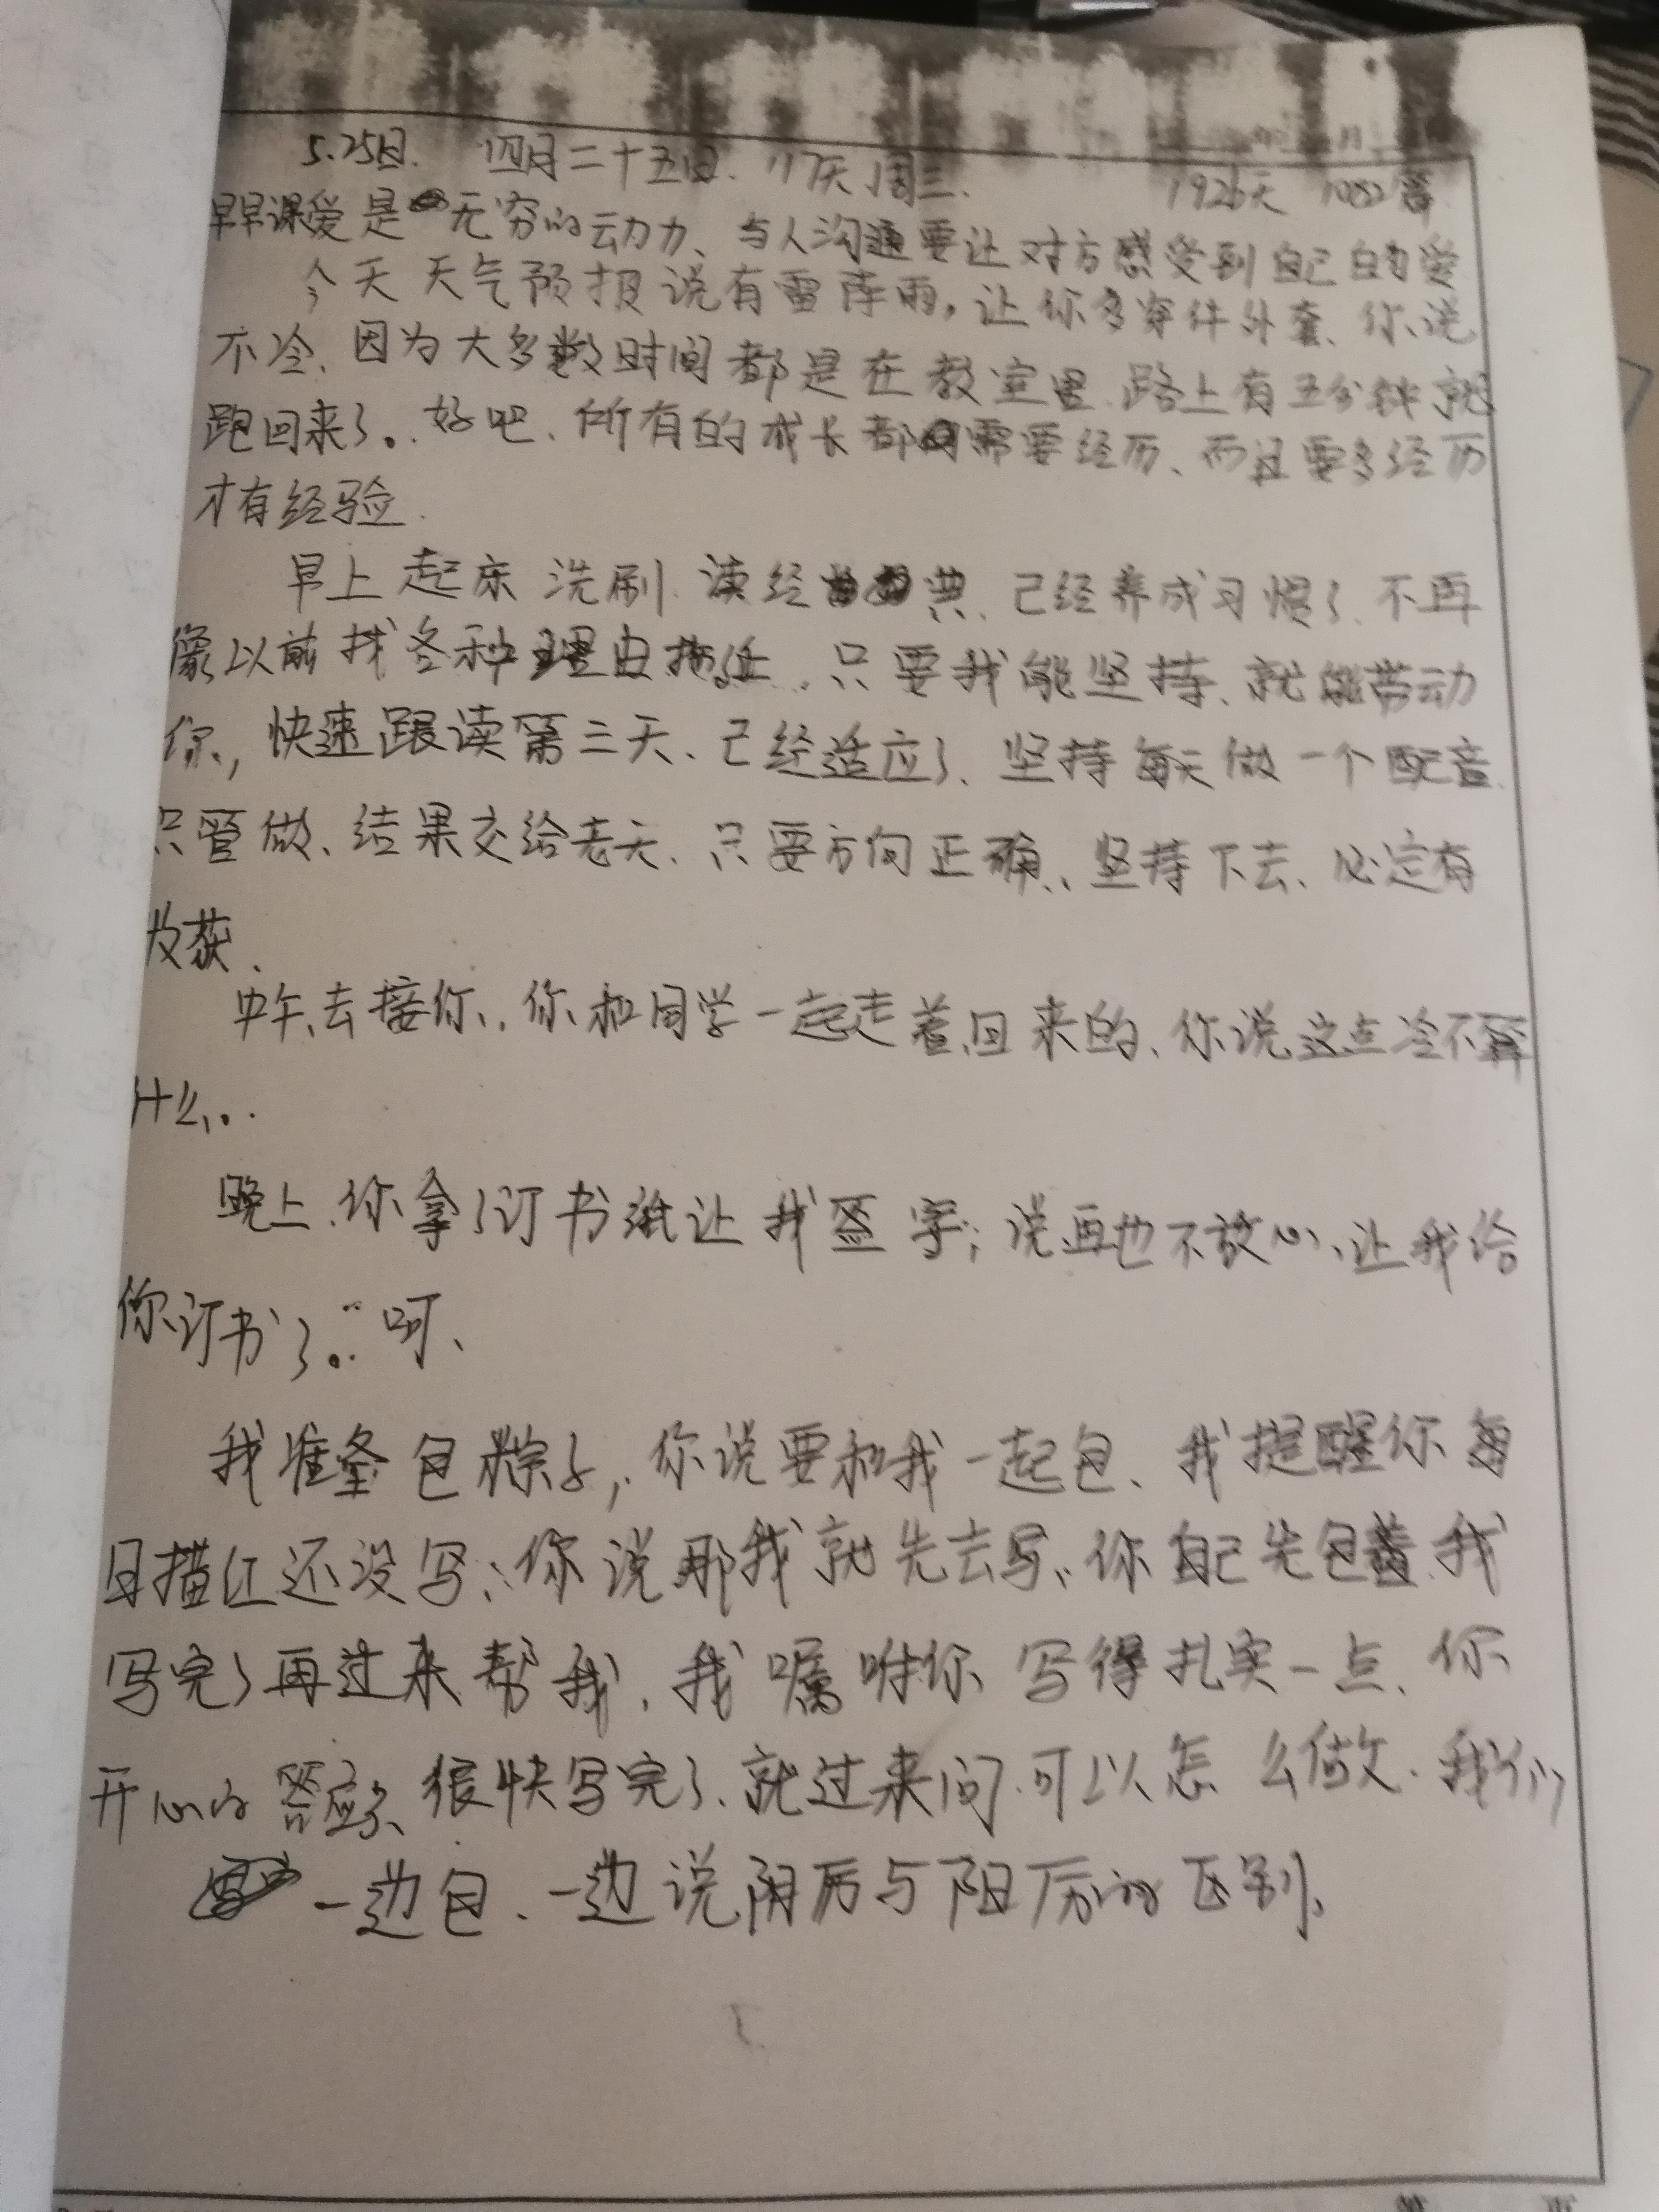 5.25日. 四月二十五日. 117天 周三. 1926天 1082篇
早早课爱是无穷的动力、与人沟通要让对方感受到自己的爱
今天天气预报说有雷阵雨，让你多穿件外套、你说
不冷、因为大多数时间都是在教室里.路上有五分钟就
跑回来了。..好吧、所有的成长都需要经历、而且要多经历
才有经验.
早上起床洗刷.读经典、已经养成习惯了.不再
像以前找各种理由拖延...只要我能坚持、就能带动
你,快速跟读第三天、已经适应了、坚持每天做一个配音.
只管做、结果交给老天.只要方向正确、坚持下去、必定有
收获.
中午去接你、你和同学一起走着回来的、你说这点冷不算
什么。..
晚上、你拿了订书纸让我签字；说再也不放心、让我给
你订书了。..呵、
我准备包粽子，你说要和我一起包、我提醒你每
日描红还没写、你说那我就先去写、你自己先包着.我
写完了再过来帮我、我嘱咐你写得扎实一点、你
开心的答应了、很快写完了、就过来问.可以怎么做.我们
一边包、一边说阴历与阳历的区别、